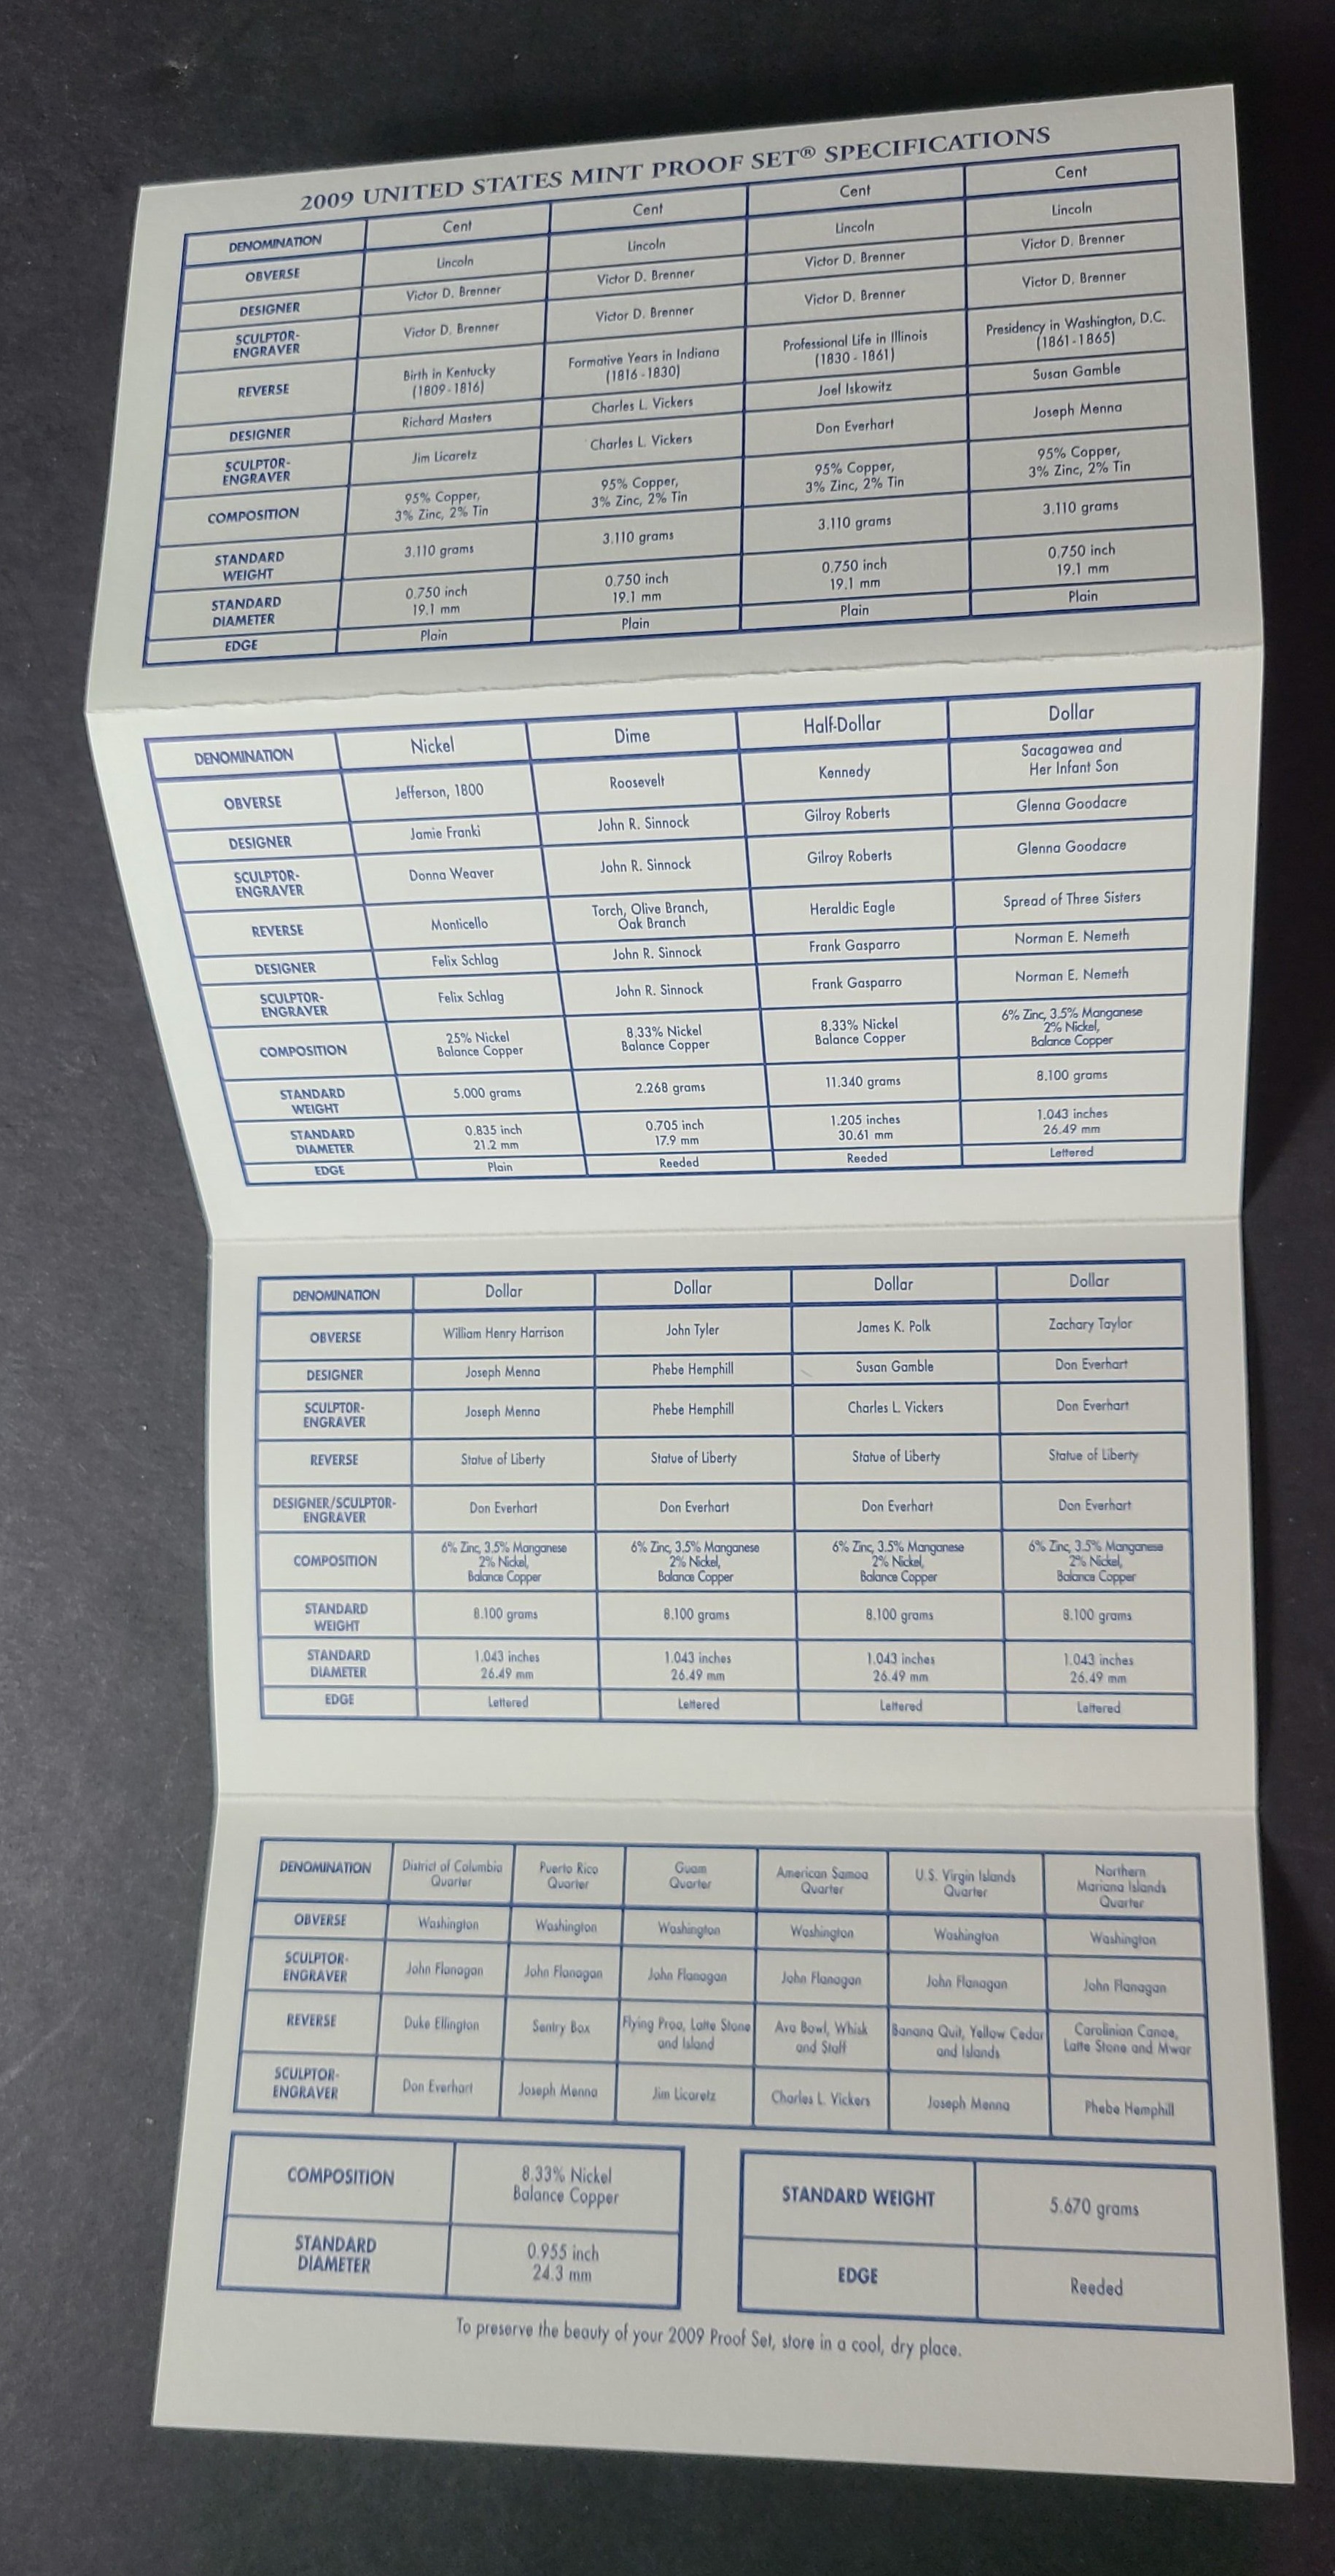 2009 UNITED STATES MINT PROOF SET® SPECIFICATIONS
DENOMINATION Cent Cent Cent Cent
OBVERSE Lincoln Lincoln Lincoln Lincoln
DESIGNER Victor D. Brenner Victor D. Brenner Victor D. Brenner Victor D. Brenner
SCULPTOR- Victor D. Brenner Victor D. Brenner Victor D. Brenner Victor D. Brenner
ENGRAVER
REVERSE Birth in Kentucky Formative Years in Indiana Professional Life in Illinois Presidency in Washington, D.C.
(1809-1816) (1816-1830) (1830 - 1861) (1861-1865)
DESIGNER Richard Masters Charles L. Vickers Joel Iskowitz Susan Gamble
SCULPTOR- Jim Licaretz Charles L. Vickers Don Everhart Joseph Menna
ENGRAVER
COMPOSITION 95% Copper, 95% Copper, 95% Copper, 95% Copper,
3% Zinc, 2% Tin 3% Zinc, 2% Tin 3% Zinc, 2% Tin 3% Zinc, 2% Tin
STANDARD 3.110 grams 3.110 grams 3.110 grams 3.110 grams
WEIGHT
STANDARD 0.750 inch 0.750 inch 0.750 inch 0.750 inch
DIAMETER 19.1 mm 19.1 mm 19.1 mm 19.1 mm
EDGE Plain Plain Plain Plain
DENOMINATION Nickel Dime Half-Dollar Dollar
OBVERSE Jefferson, 1800 Roosevelt Kennedy Sacagawea and
Her Infant Son
DESIGNER Jamie Franki John R. Sinnock Gilroy Roberts Glenna Goodacre
SCULPTOR- Donna Weaver John R. Sinnock Gilroy Roberts Glenna Goodacre
ENGRAVER
REVERSE Monticello Torch, Olive Branch, Heraldic Eagle Spread of Three Sisters
Oak Branch
DESIGNER Felix Schlag John R. Sinnock Frank Gasparro Norman E. Nemeth
SCULPTOR- Felix Schlag John R. Sinnock Frank Gasparro Norman E. Nemeth
ENGRAVER
COMPOSITION 25% Nickel 8.33% Nickel 8.33% Nickel 6% Zinc, 3.5% Manganese
Balance Copper Balance Copper Balance Copper 2% Nickel,
Balance Copper
STANDARD 5.000 grams 2.268 grams 11.340 grams 8.100 grams
WEIGHT
STANDARD 0.835 inch 0.705 inch 1.205 inches 1.043 inches
DIAMETER 21.2 mm 17.9 mm 30.61 mm 26.49 mm
EDGE Plain Reeded Reeded Lettered
DENOMINATION Dollar Dollar Dollar Dollar
OBVERSE William Henry Harrison John Tyler James K. Polk Zachary Taylor
DESIGNER Joseph Menna Phebe Hemphill Susan Gamble Don Everhart
SCULPTOR- Joseph Menna Phebe Hemphill Charles L. Vickers Don Everhart
ENGRAVER
REVERSE Statue of Liberty Statue of Liberty Statue of Liberty Statue of Liberty
DESIGNER/SCULPTOR- Don Everhart Don Everhart Don Everhart Don Everhart
ENGRAVER
COMPOSITION 6% Zinc, 3.5% Manganese 6% Zinc, 3.5% Manganese 6% Zinc, 3.5% Manganese 6% Zinc, 3.5% Manganese
2% Nickel, 2% Nickel, 2% Nickel, 2% Nickel,
Balance Copper Balance Copper Balance Copper Balance Copper
STANDARD 8.100 grams 8.100 grams 8.100 grams 8.100 grams
WEIGHT
STANDARD 1.043 inches 1.043 inches 1.043 inches 1.043 inches
DIAMETER 26.49 mm 26.49 mm 26.49 mm 26.49 mm
EDGE Lettered Lettered Lettered Lettered
DENOMINATION District of Columbia Puerto Rico Guam American Samoa U.S. Virgin Islands Northern
Quarter Quarter Quarter Quarter Quarter Mariana Islands
Quarter
OBVERSE Washington Washington Washington Washington Washington Washington
SCULPTOR- John Flanagan John Flanagan John Flanagan John Flanagan John Flanagan John Flanagan
ENGRAVER
REVERSE Duke Ellington Sentry Box Flying Proa, Latte Stone Ava Bowl, Whisk Banana Quit, Yellow Cedar Carolinian Canoe,
and Island and Staff and Islands Latte Stone and Mwar
SCULPTOR- Don Everhart Joseph Menna Jim Licaretz Charles L. Vickers Joseph Menna Phebe Hemphill
ENGRAVER
COMPOSITION 8.33% Nickel STANDARD WEIGHT 5.670 grams
Balance Copper
STANDARD 0.955 inch EDGE Reeded
DIAMETER 24.3 mm
To preserve the beauty of your 2009 Proof Set, store in a cool, dry place.